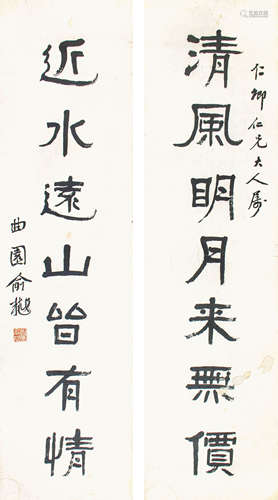 仁卿仁兄大人属
清風明月来無價
近水遠山皆有情
曲園俞樾